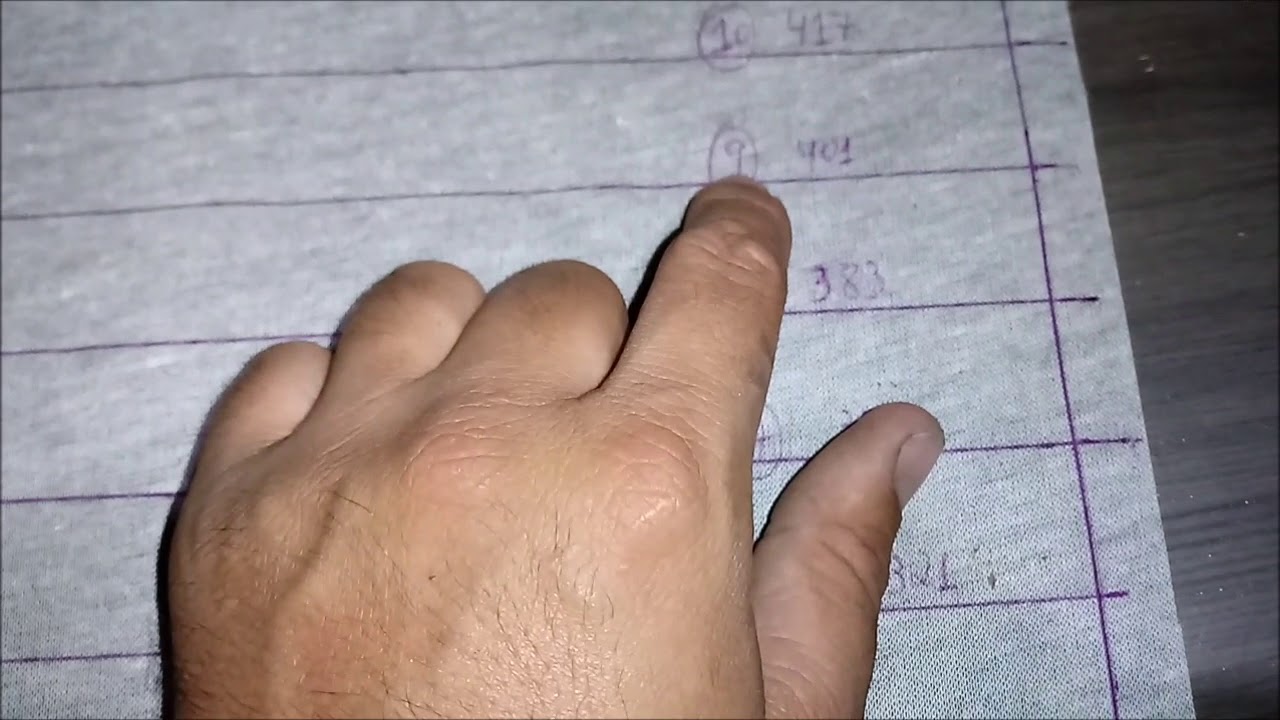 10 417
9 401
383